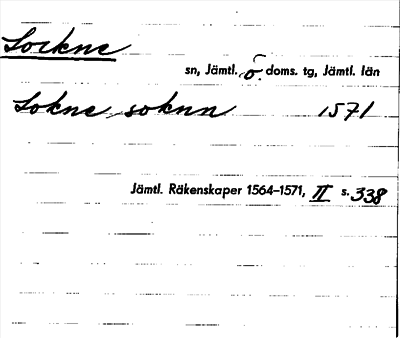 Lockne
sn, Jämtl. ö. doms. tg, Jämtl. län
Lokne soknn 1571
Jämtl. Räkenskaper 1564–1571, II s. 338